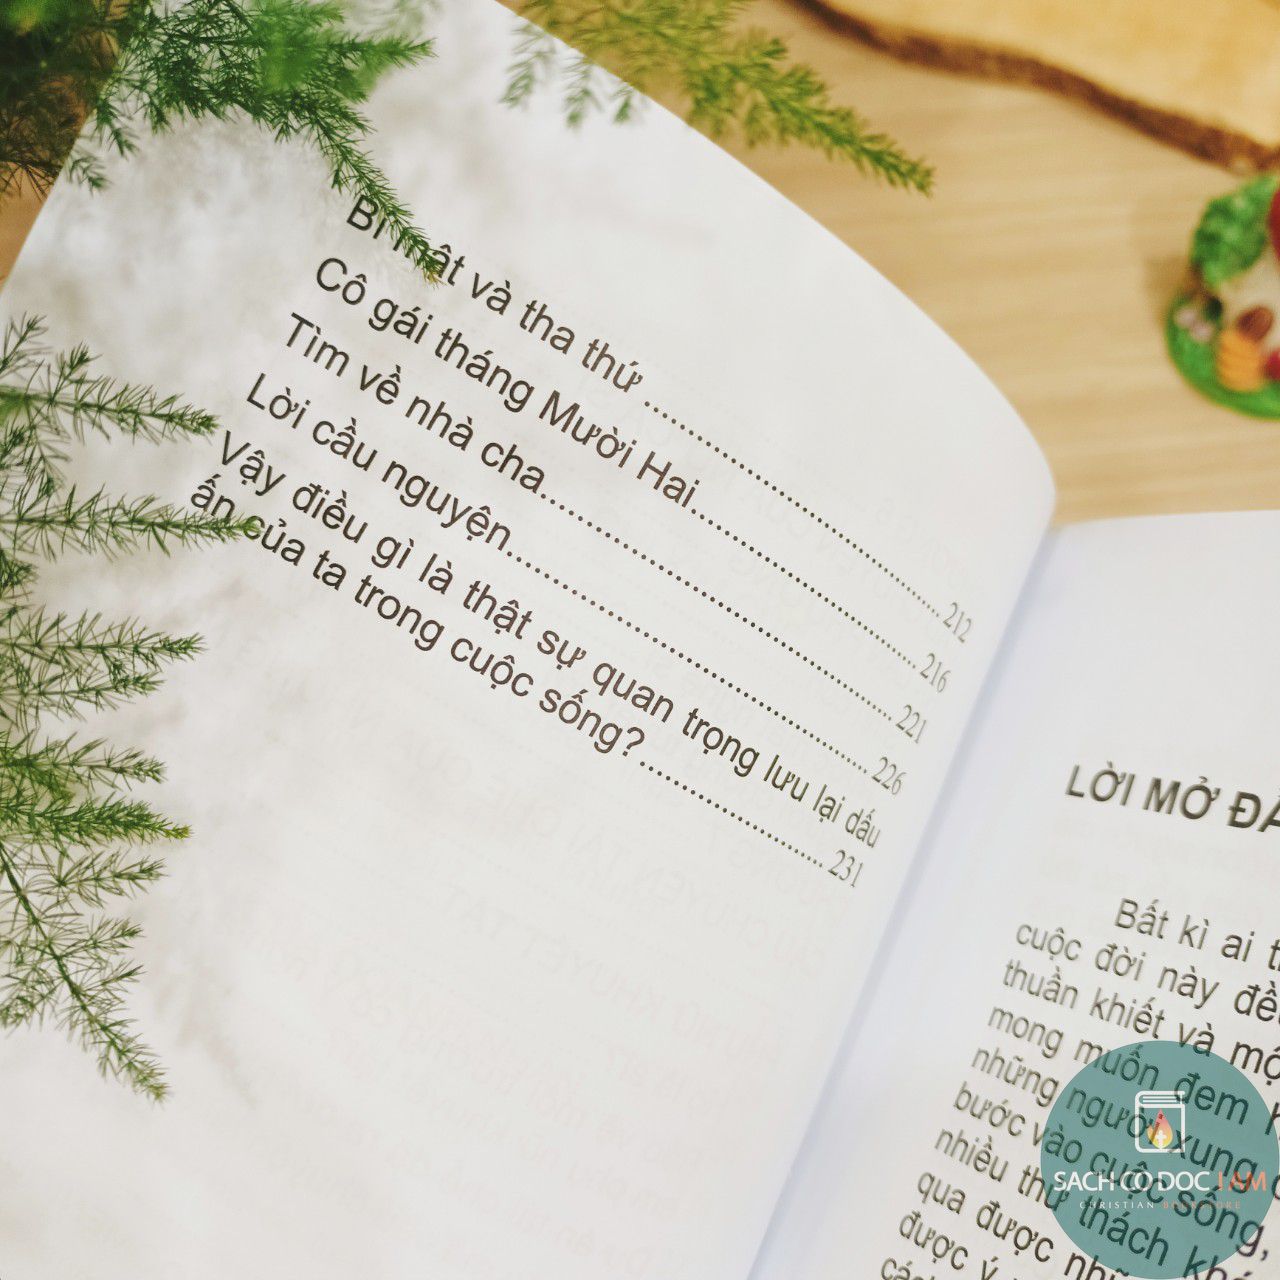 Bí mật và tha thứ........................................212
Cô gái tháng Mười Hai........................................216
Tìm về nhà cha........................................221
Lời cầu nguyện........................................226
Vậy điều gì là thật sự quan trọng lưu lại dấu
ấn của ta trong cuộc sống?........................................231
LỜI MỞ
Bất kì ai
cuộc đời này
thuần khiết và
mong muốn đem
những người xung
bước vào cuộc sống,
nhiều thử thách
qua được
được ý
SACH CO DOC I AM
CHRISTIAN BOOKSTORE